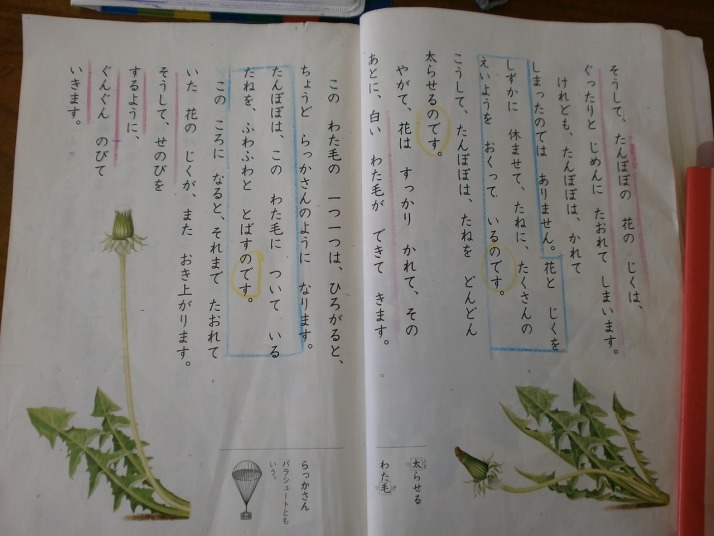 そうして、たんぽぽの 花の じくは、
ぐったりと じめんに たおれて しまいます。
けれども、たんぽぽは、かれて
しまったのでは ありません。花と じくを
しずかに 休ませて、たねに、たくさんの
えいようを おくって いるのです。
こうして、たんぽぽは、たねを どんどん
太らせるのです。
やがて、花は すっかり かれて、その
あとに、白い わた毛が できて きます。
太らせる
わた毛
この わた毛の 一つ一つは、ひろがると、
ちょうど らっかさんのように なります。
たんぽぽは、この わた毛に ついて いる
たねを、ふわふわと とばすのです。
この ころに なると、それまで たおれて
いた 花の じくが、また おき上がります。
そうして、せのびを
するように、
ぐんぐん のびて
いきます。
らっかさん
パラシュートとも
いう。